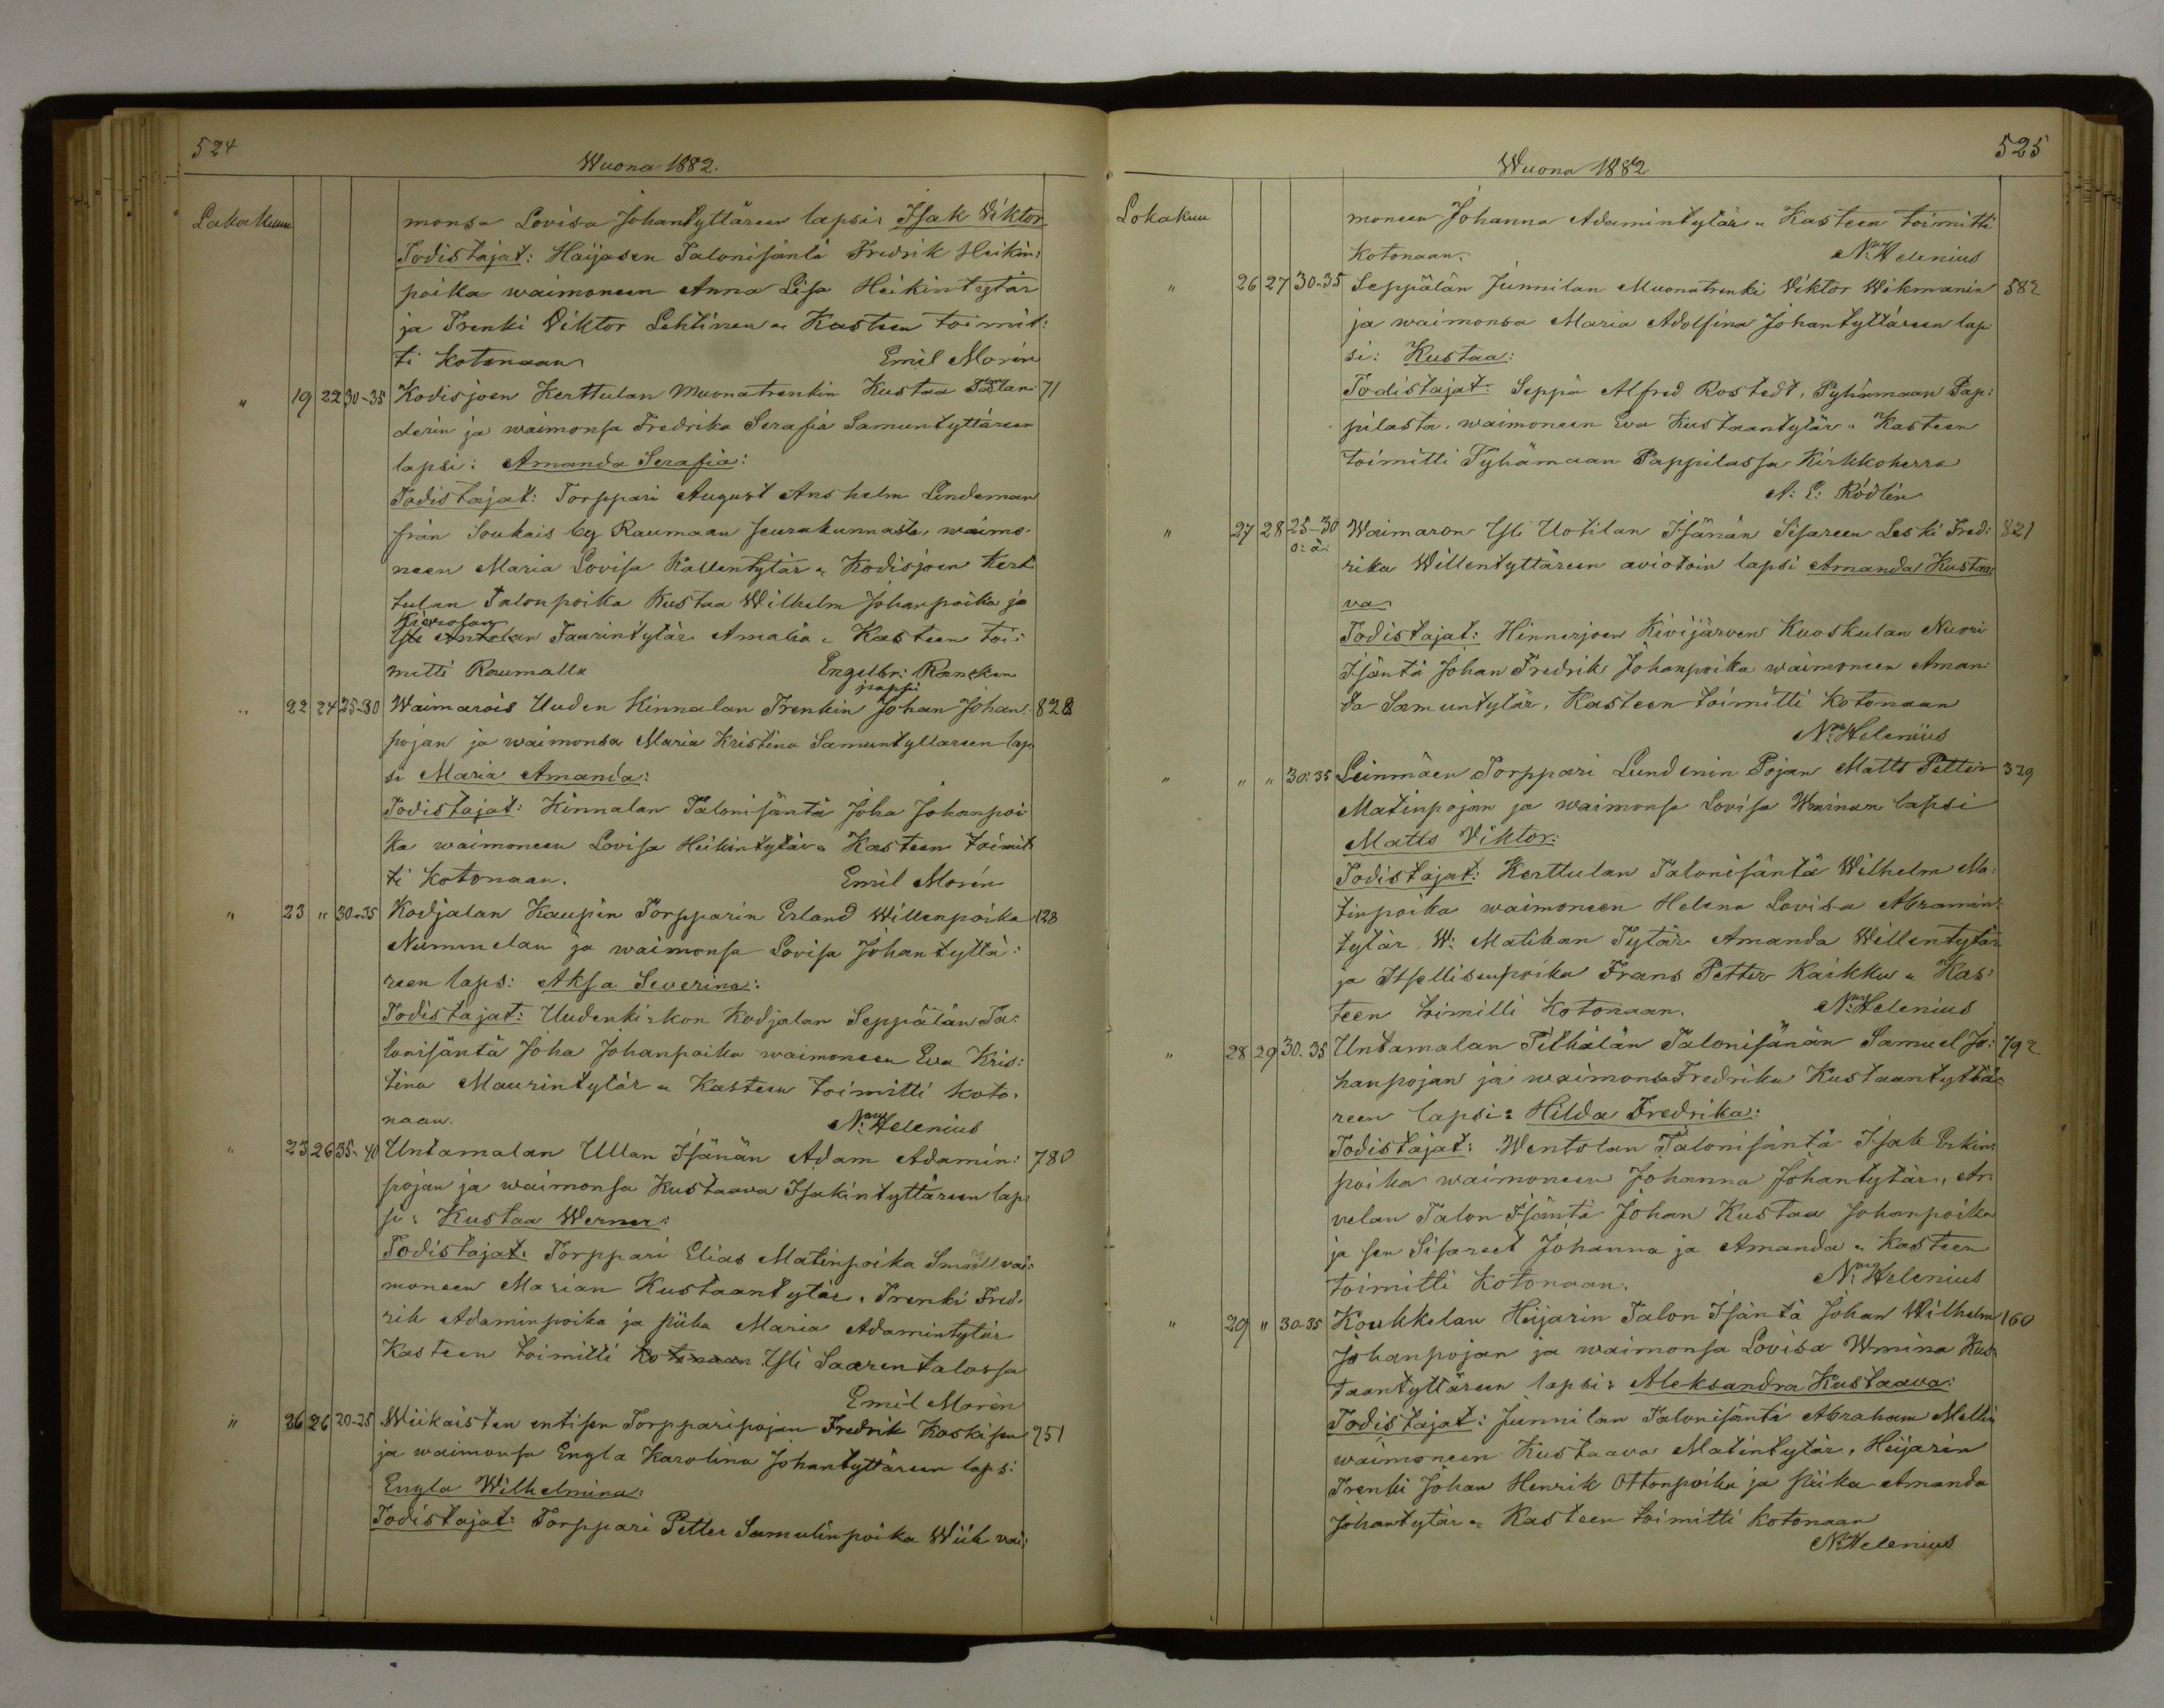 524
Wuona 1882.
Lokakuu
monsa Lovisa Johantyttäreen lapsi: Isak Viktor
Todistajat: Haijasen Talonisäntä Fredrik Heikin:
poika waimoneen Anna Lisa Heikintytär
ja Trenki Viktor Lehtinen " Kasteen toimit:
ti kotonaan Emil Morén
" 19 22 30-35 Kodisjoen Kerttulan Muonatrenkin Kustaa Tolan 71
derin ja waimonsa Fredrika Serafia Samuntyttäreen
lapsi: Amanda Serafia:
Todistajat: Torppari August Anshelm Lindeman
från Soukais by Raumaan seurakunnasta, waimo-
neen Maria Lovisa Kallentytär " Kodisjoen Kert
tulan Talonpoika Kustaa Wilhelm Johanpoika ja
Yli Antolan Taurintytär Amalia " Kasteen toi:
mitti Raumalla Engelbr: Rancken
pappi
" 22 24 25-30 Waimarois Uuden Hinnalan Trenkin Johan Johan- 828
pojan ja waimonsa Maria Kristina Samuntyttareen lap
si Maria Amanda:
Todistajat: Hinnalan Talonisäntä Joha Johanpoi
ka waimoneen Lovisa Heikintytär " Kasteen toimit
ti kotonaan. Emil Morén
" 23 " 30-35 Kodjalan Kaupin Torpparin Erland Willenpoika 128
Nummelan ja waimonsa Lovisa Johantyttä:
reen laps: Aksa Severina:
Todistajat: Uudenkirkon Kodjalan Seppälän Ta:
lonisäntä Joha Johanpoika waimoneen Eva Kris:
tina Maurintytär " Kasteen toimitti koto-
naan. N: Helenius
" 23 26 35-40 Untamalan Ullan Isänän Adam Adamin: 780
pojan ja waimonsa Kustaava Isakintyttäreen lap:
si: Kustaa Werner:
Todistajat: Torppari Elias Matinpoika Smäll wai:
moneen Marian Kustaantytär, Trenki Fred-
rik Adaminpoika ja piika Maria Adamintytär
Kasteen toimitti kotonaan Yli Saaren talossa
Emil Morén
" 26 26 20-25 Wiikaisten entisen Torpparipojan Fredrik Koskisen 951
ja waimonsa Engla Karolina Johantyttäreen laps:
Engla Wilhelmina:
Todistajat: Torppari Petter Samulinpoika Wiik wai:
525
Wuona 1882
Lokakuu
moneen Johanna Adamintytär " Kasteen toimitti
kotonaan. N: Helenius
" 26 27 30-35 Seppälän Junnilan Muonatrenki Viktor Wikmanin 582
ja waimonsa Maria Adolfina Johantyttäreen lap
si: Kustaa:
Todistajat: Seppä Alfred Rostedt, Pyhämaan Pap:
pilasta, waimoneen Eva Kustaantytär " Kasteen
toimitti Pyhämaan Pappilassa Kirkkoherra
A: E: Rödlin
" 27 28 25-30 Waimaron Yli Uotilan Isänän Sisareen Leski Fred: 821
o: ä:
rika Willentyttäreen aviotoin lapsi Amanda Kustaa:
va
Todistajat: Hinnerjoen Kivijärven Kuoskulan Nuori
Isäntä Johan Fredrik Johanpoika waimoneen Aman
da Samuntytär, Kasteen toimitti kotonaan
N: Helenius
" " " 30-35 Leinmäen Torppari Lundenin Pojan Matts Petter 329
Matinpojan ja waimonsa Lovisa Wainun lapsi
Matts Viktor:
Todistajat: Kerttulan Talonisäntä Wilhelm Ma:
tinpoika waimoneen Helena Lovisa Abramin:
tytär W: Matikan Tytär Amanda Willentytär
ja Itsellisenpoika Frans Petter Kaikku " Kas:
teen toimitti kotonaan. N: Helenius
" 28 29 30-35 Untamalan Pilhälän Talonisänän Samuel Jo: 792
hanpojan ja waimonsa Fredrika Kustaantyttä:
reen lapsi: Hilda Fredrika:
Todistajat: Wentolan Talonisäntä Isak Erkin
poika waimoneen Johanna Johantytär, Ar
velan Talon Isäntä Johan Kustaa Johanpoika
ja sen Sisareet Johanna ja Amanda " Kasteen
toimitti kotonaan. N: Helenius
" 29 " 30-35 Koukkelan Heijarin Talon Isäntä Johan Wilhelm 160
Johanpojan ja waimonsa Lovisa Wmina Kus
taantyttäreen lapsi: Aleksandra Kustaava:
Todistajat: Junnilan Talonisäntä Abraham Mellin
waimoneen Kustaava Matintytär, Heijarin
Trenki Johan Henrik Ottonpoika ja piika Amanda
Johantytär " Kasteen toimitti kotonaan
N: Helenius